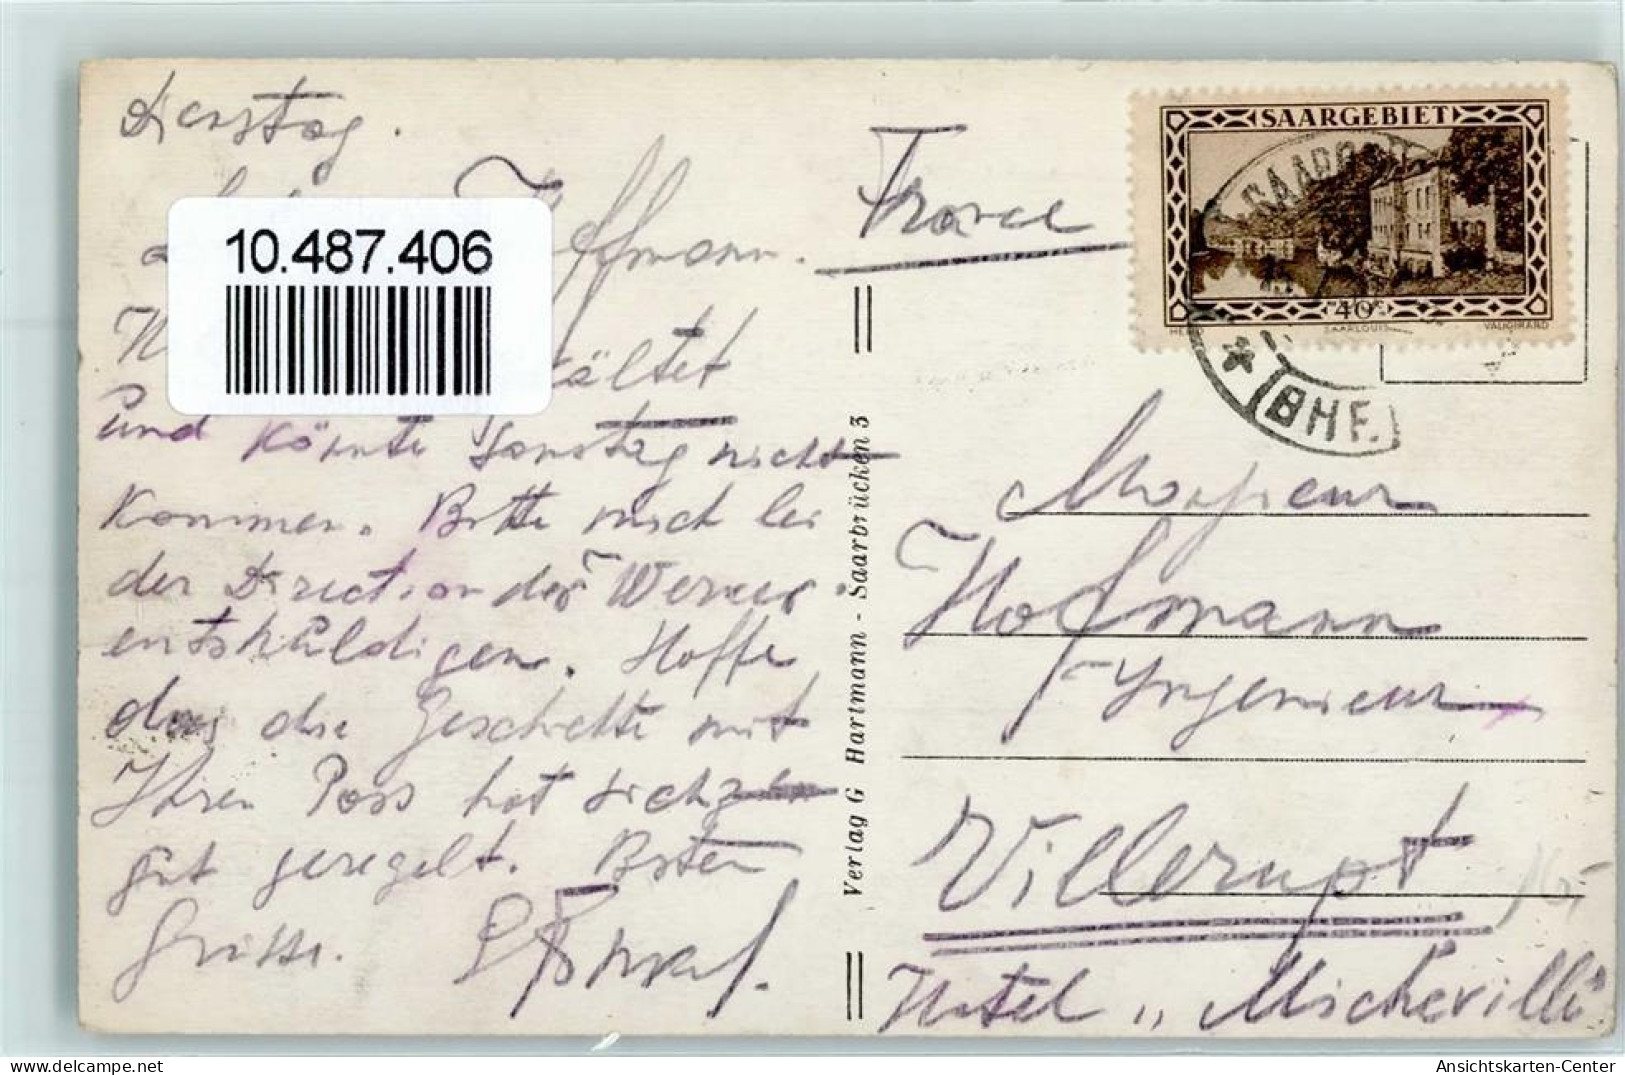 Dienstag.
Hoffmann.
10.487.406
kältet
und könnte Samstag nicht
kommen. Bitte mich bei
der Direction der Werner
entschuldigen. Hoffe
dass die Geschichte mit
Ihren Pass hat sich
gut geregelt. Besten
Grüsse.
Verlag G Hartmann - Saarbrücken 3
France
SAARGEBIET
40
SAARLOUIS
VAUGIRARD
(BHF.)
Monsieur
Hofmann
Ingenieur
Villerupt
Hotel „Micheville"
Ansichtskarten-Center